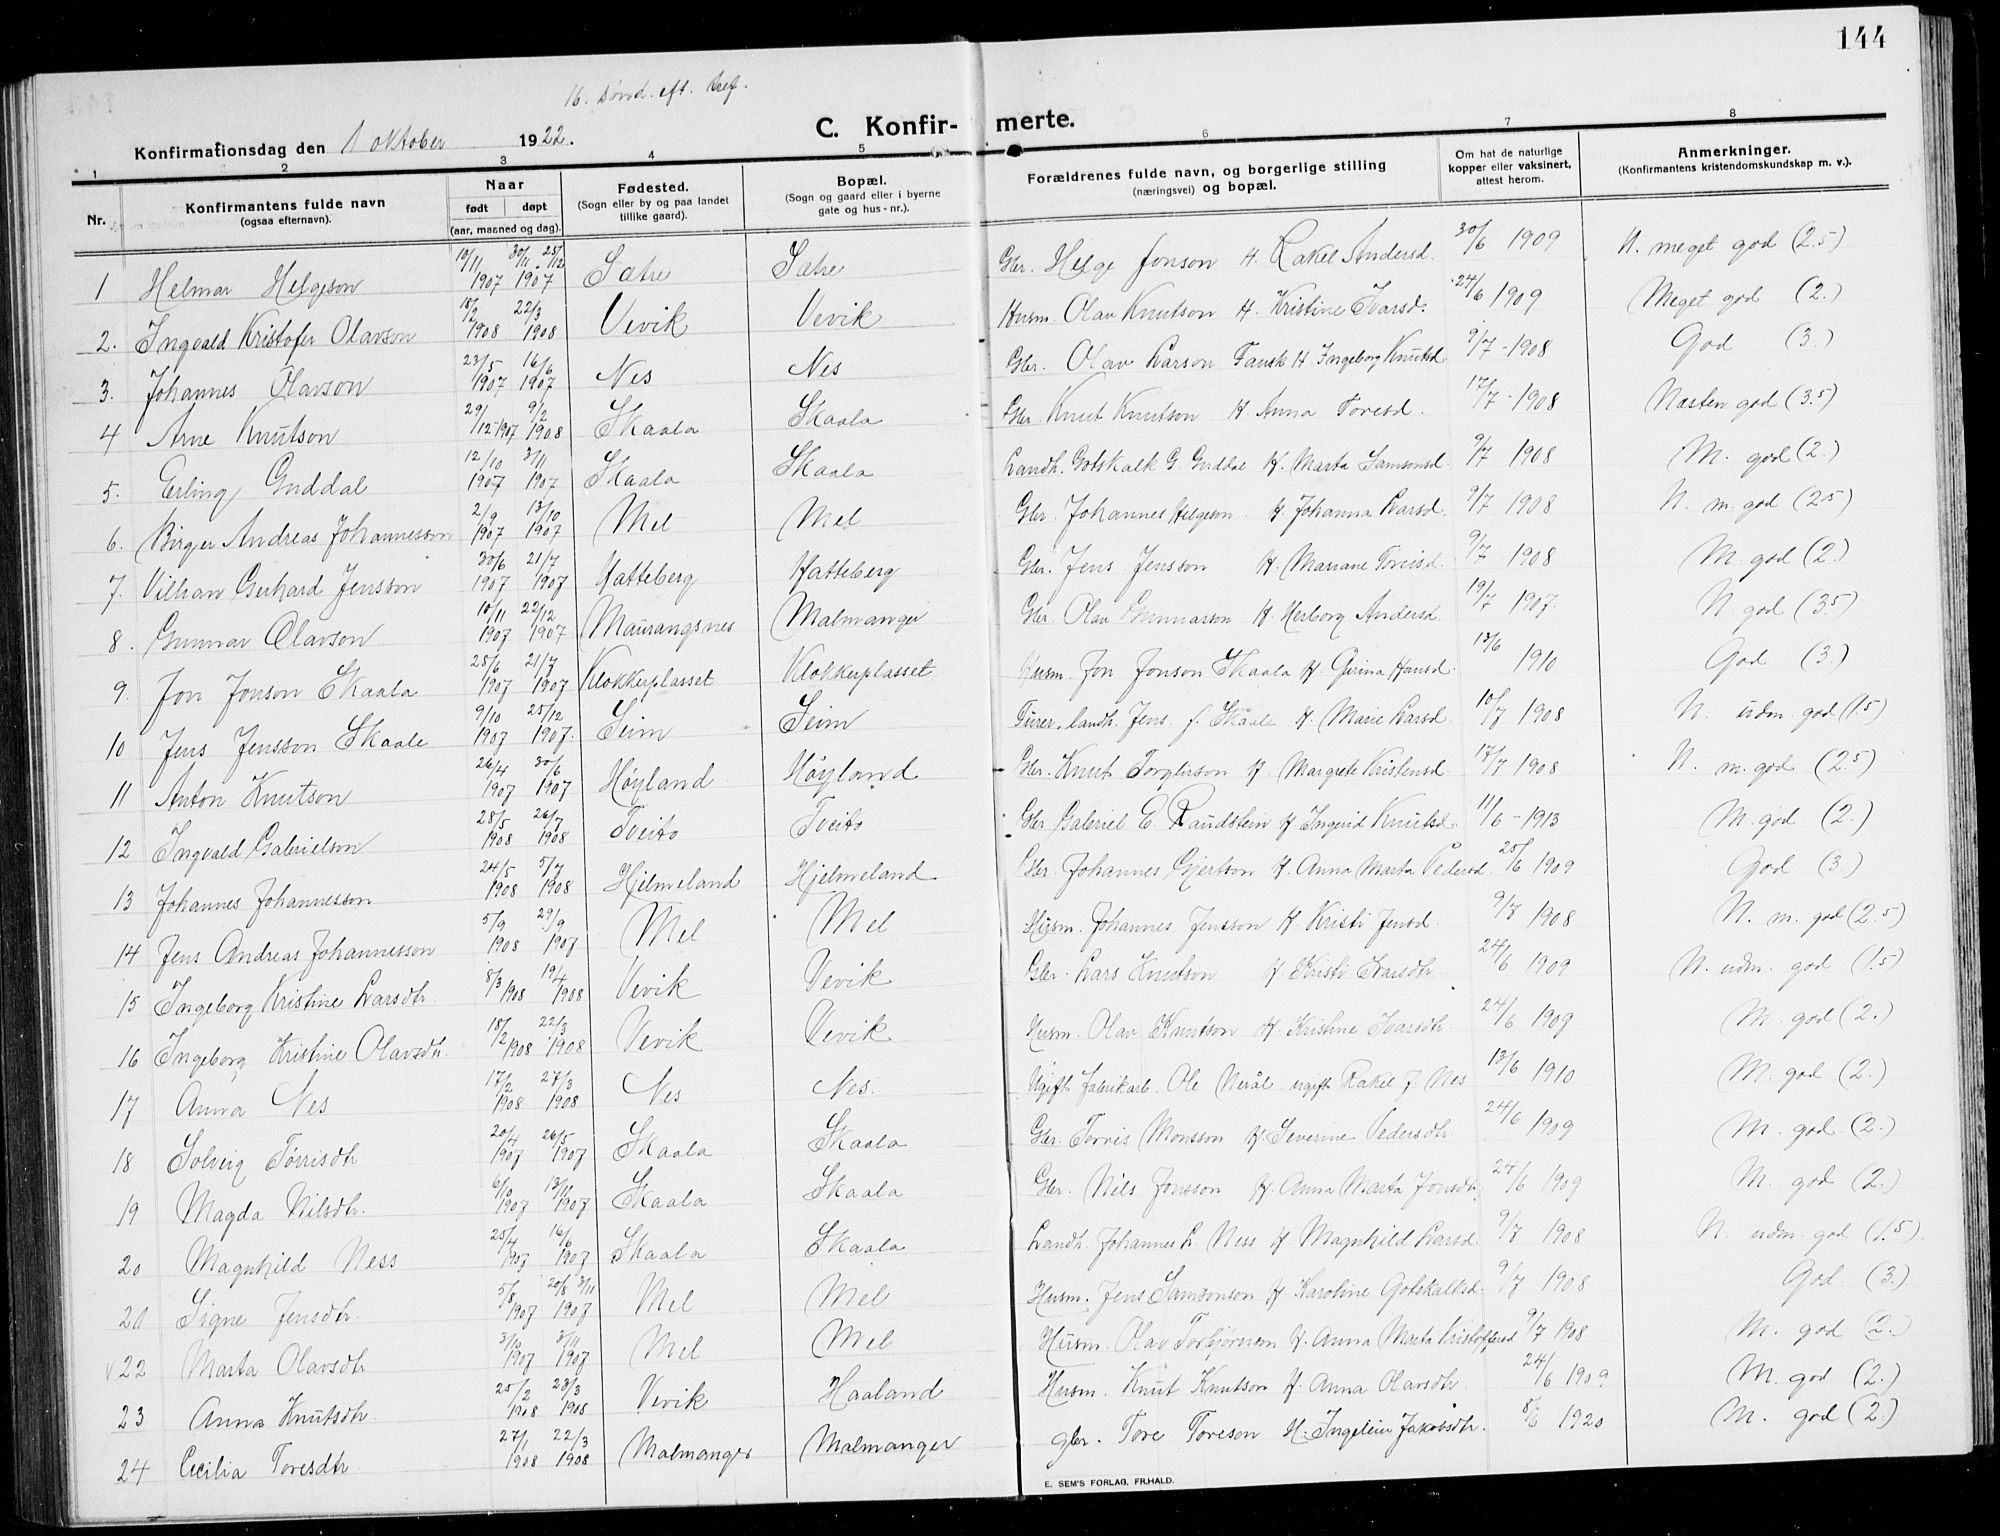 144
16. sønd. eft. tref.
Konfirmationsdag den 1 oktober 1922.
C. Konfir- merte.
1 2 3 4 5 6 7 8
Nr.
Konfirmantens fulde navn (ogsaa efternavn).
Naar født døpt (aar, maaned og dag).
Fødested. (Sogn eller by og paa landet tillike gaard).
Bopæl. (Sogn og gaard eller i byerne gate og hus-nr.).
Forældrenes fulde navn, og borgerlige stilling (næringsvei) og bopæl.
Om hat de naturlige kopper eller vaksinert, attest herom.
Anmerkninger. (Konfirmantens kristendomskundskap m. v.).
1 Helmar Helgeson 10/11 1907 30/11. 25/12 1907 Sætre Sætre Gbr. Helge Jonson H. Rakel Andersd. 30/6 1909 N. meget god (2.5)
2. Ingvald Kristofer Olavson 18/2 1908 22/3 1908 Vevik Vevik Husm. Olav Knutson H. Kristine Ivarsd. 24/6 1909 Meget god (2.)
3. Johannes Olavson 23/5 1907 16/6 1907 Nes Nes Gbr. Olav Larson Fausk H. Ingeborg Knutsd 9/7 - 1908 God (3.)
4 Arne Knutson 29/12 1907 9/2 1908 Skaala Skaala Gbr. Knut Knutson H. Anna Toresd. 17/7 - 1908 Næsten god (3.5)
5. Erling Guddal 12/10 1907 3/11 1907 Skaala Skaala Landh. Gotskalk G. Guddal H. Marta Samsonsd. 9/7 1908 M. god (2.)
6. Birger Andreas Johannesson 2/9 1907 13/10 1907 Mel Mel Gbr. Johannes Helgeson. H. Johanna Larsd. 9/7 1908 N. m. god (2.5)
7. Villian Gerhard Jensson 30/6 1907 21/7 1907 Hatteberg Hatteberg Gbr. Jens Jensson H. Mariane Torrisd. 9/7 1908 M. god (2.)
8. Gunnar Olavson 10/11 1907 22/12 1907 Maurangsnes Malmanger Gbr. Olav Gunnarson H. Herborg Andersd. 19/7 1907. N. god (3.5)
9. Jon Jonson Skaala 25/6 1907 21/7 1907 Klokkerplasset Klokkerplasset Husm. Jon Jonson Skaala H. Gurina Hansd. 13/6 1910 God (3.)
10 Jens Jensson Skaale 9/10 1907 25/12 1907. Seim Seim landh. Jens J. Skaale H. Marie Larsd. 10/7 1908 N. udm. god (1.5)
11 Anton Knutson 26/4 1907 30/6 1907 Høyland Høyland Gbr. Knut Torgilsson H. Margrete Kristensd. 17/7 1908 N. m. god (2.5)
12 Ingvald Gabrielson 28/5 1908 26/7 1908 Tveito Tveito Gbr. Gabriel E. Raudstein H. Ingerid Knutsd. 11/6 - 1913 M. god (2.)
13 Johannes Johannesson 24/5 1908 5/7 1908 Hjelmeland Hjelmeland Gbr. Johannes Gjertson H. Anna Marta Pedersd. 25/6 1909 God (3.)
14 Jens Andreas Johannesson 5/9 1908 29/9 1907 Mel Mel Husm. Johannes Jensson H. Kristi Jensd. 9/7 1908 N. m. god (2.5)
15 Ingeborg Kristine Larsdtr. 8/3 1908 19/4 1908 Vevik Vevik Gbr. Lars Knutson H. Kristi Ivarsdtr. 24/6 1909 N. udm. god (1.5)
16 Ingeborg Kristine Olavsdtr. 18/2 1908 22/3 1908 Vevik Vevik Husm. Olav Knutson H. Kristine Ivarsdtr. 24/6 1909 M. god (2.)
17 Anna Nes 17/2 1908 27/3 1908 Nes Nes. Ugift Fabrikarb. Ole Nerål ugift Rakel J. Nes 13/6 1910 M. god (2.)
18 Solveig Tørrisdtr 20/4 1907 26/5 1907 Skaala Skaala Gbr. Torris Monsson H. Severine Pedersdtr. 24/6 1909 M. god. (2.)
19 Magda Nilsdtr. 6/10 1907 13/11 1907 Skaala Skaala Gbr. Nils Jonsson H. Anna Marta Jonsdtr. 24/6 1909 M. god (2.)
20 Magnhild Ness 25/4 1907 16/6 1907 Skaala Skaala Landh. Johannes L. Ness H. Magnhild Larsd. 9/7 1908 N. udm. god (1.5)
21 Signe Jensdtr. 5/8 1907 20/8 3/11 1907 Mel Mel Husm. Jens Samsonson H. Karoline Gotskalksd. 9/7 1908 God. (3.)
v 22 Marta Olavsdtr 3/10 1907 3/11 1907 Mel Mel Husm. Olav Torbjørnson H. Anna Marta Kristoffersd 9/7 1908 M. god (2.)
23 Anna Knutsdtr. 25/2 1908 23/3 1908 Vevik Haaland Husm. Knut Knutson H. Anna Olavsdtr. 24/6 1909 M. god (2.)
24 Cecilia Toresdtr. 27/1 1908 22/3 1908 Malmanger Malmanger gbr. Tore Toreson H. Ingelein Jakobsdtr. 8/6 1920 M. god (2.)
E. SEM'S FORLAG, FR.HALD.